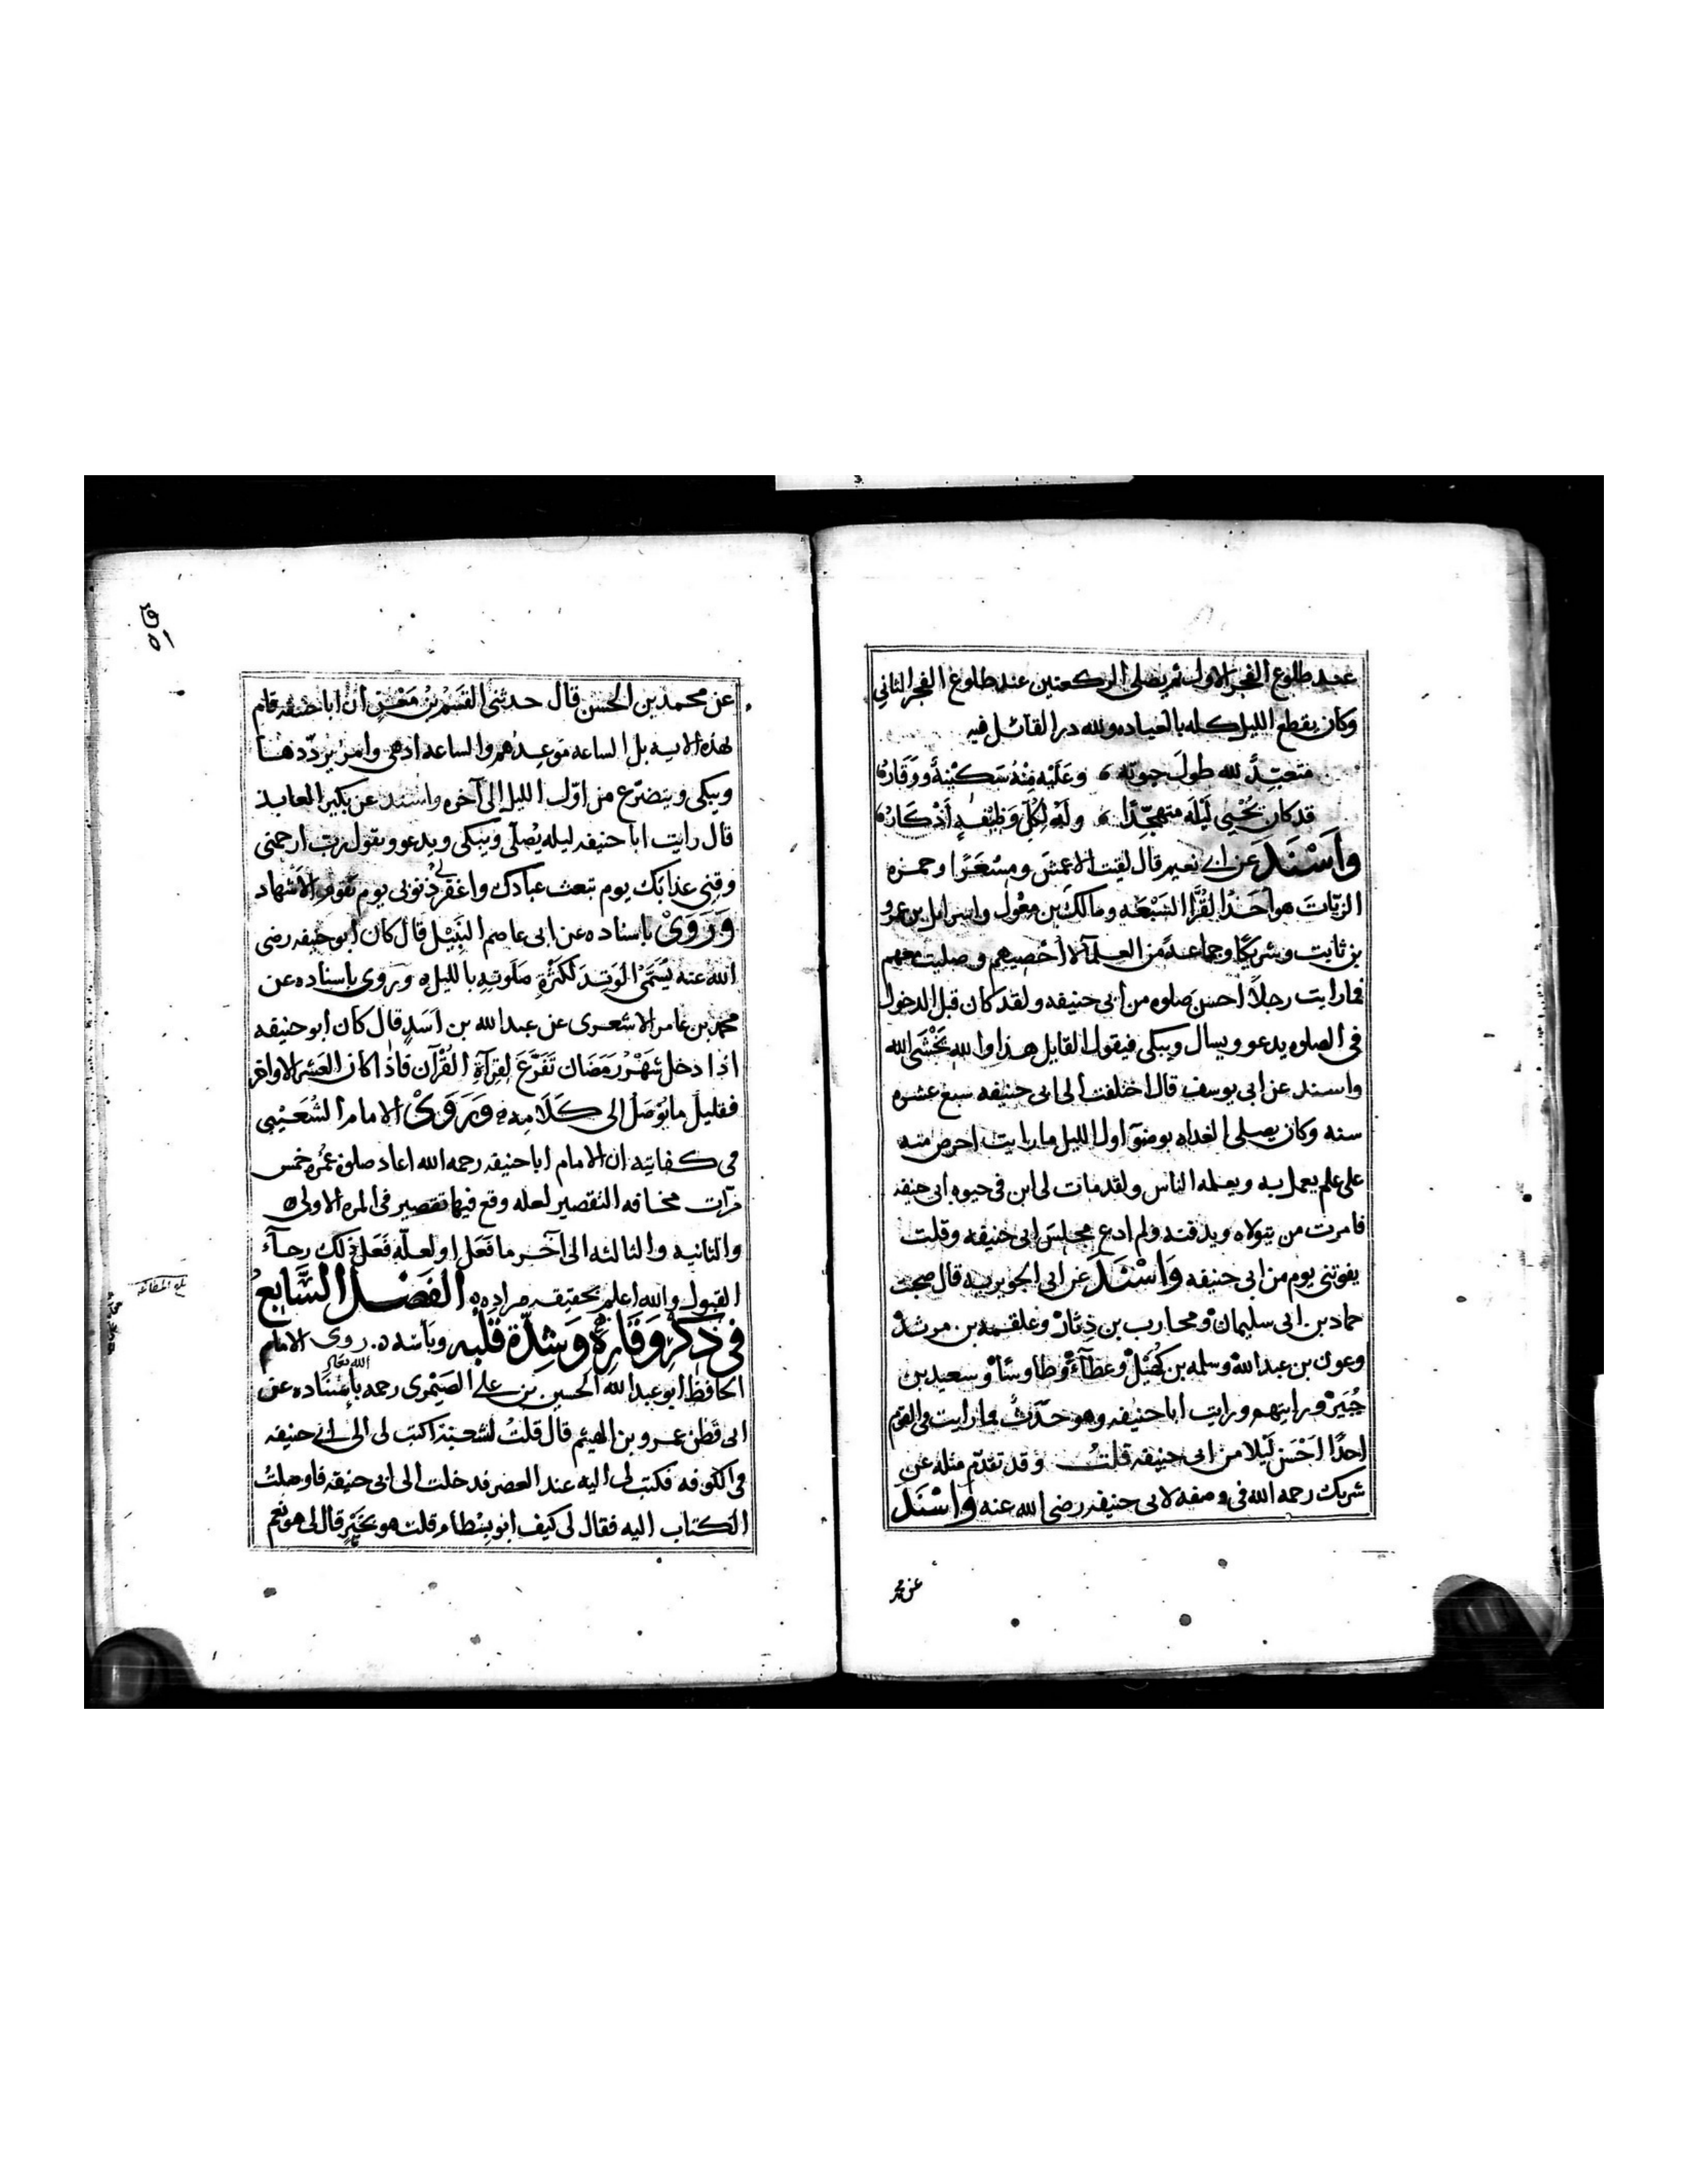 عند طلوع الفجر الاول ثم يصلي الركعتين عند طلوع الفجر الثاني
وكان يقطع الليل كله بالعباده ولله در القائل فيه
متعبدٌ لله طولَ حيوته وعَلَيْه مِنْهُ سَكِيْنَةٌ ووَقَارُ
قد كان يُحْيِى لَيْلَه متهجّدًا وله لِكُلِّ وَظِيْفَةٍ أَذْكَارُ
وَأَسْنَدَ عن ابى نعيم قال لقيت الاعمشَ ومِسْعَرًا وحمزه
الزيّات هو أحَدُ القُرَّا السَّبْعَه ومالكَ بن مِغْوَل واسرايل بن عمرو
بن ثابت وشريكًا وجماعةً من العلمآ لا أُحْصِيهم وصليت معهم
فما رايت رجلاً احسن صلوه من ابى حنيفه ولقد كان قبل الدخول
في الصلوه يدعو ويسال ويبكى فيقول القايل هذا والله يَخْشَى الله
واسند عن ابى يوسف قال اختلفت الى ابى حنيفه سبع عشره
سنه وكان يصلى الغداه بوضوٓ اول الليل ما رايت احرص منه
على علم يعمل به ويعلمه الناس ولقد مات لى ابن في حيوه ابى حنيفه
فامرت من يتولاه ويدفنه ولم ادع مجلسَ ابى حنيفه وقلت
يفوتنى يوم من ابى حنيفه وَاَسْنَدَ عن ابى الجويريه قال صحبت
حماد بن ابى سليمان ومحارب بن دِثارٍ وعلقمه بن مرثدٍ
وعون بن عبد الله وسلمه بن كُهَيْلٍ وعطآءً وطاوسًا وسعيد بن
جُبَيْرٍ ورايتهم ورايت ابا حنيفه وهو حدَثٌ فما رايت في القوم
احدًا احْسَنَ لَيْلا من ابى حنيفه قلتُ وقد تقدّم مثله عن
شريك رحمه الله في وصفه لابى حنيفه رضى الله عنه وَاَسْنَدَ
عن محمد
عن محمد بن الحسن قال حدثنى القَسَمُ بْنُ مَعْنٍ ان ابا حنيفه قام
بهذه الايه بل الساعه مَوعِدُهم والساعه ادهى وامرّ يردّدها
ويبكى ويتضرّع من اوّل الليل إلى آخره واسند عن بكير العابد
قال رايت ابا حنيفه ليله يُصلّى ويبكى ويدعو ويقول ربّ ارحمنى
وقنى عذابك يوم تبعث عبادك واغفر لى ذنوبى يوم يقوم الاَشْهاد
وَرَوَىْ باسناده عن ابى عاصم النَبِيْلِ قال كان ابو حنيفه رضى
الله عنه يُسَمَّى الوَتِدَ لكَثْرةِ صَلَوتِهِ بالليل ه وروى باسناده عن
محمد بن عامر الاشعرى عن عبد الله بن اَسَدٍ قال كان ابو حنيفه
اذا دخل شَهْرُ رَمَضَان تَفَرَّغ لِقِرآةِ القُرْآن فاذا كان العَشر الاواخر
فقليل ما يُوْصَلُ الى كَلَامِه ه وَرَوَىْ الامام الشُعَيْبى
في كفايته ان الامام ابا حنيفه رحمه الله اعاد صلوة عُمْرِه خمس
مرّات مخافه التقصير لعله وقع فيها تقصير في المره الاولى
والثانيه والثالثه الى آخر ما فَعَل او لعلّه فَعَل ذلك رجآءَ
القبول والله اعلم بحقيقه مراده ه الفَصْل السَّابِعُ
فِى ذِكْرِ وَقَارِهِ وَشِدَّة قَلْبِه وبأسه ه روى الامام
الحافظ ابو عبد الله الحسين بن على الصَيْمَرى رحمه الله تعالى باسْنَاده عن
ابى قَطَن عمرو بن الهيثم قال قلتُ لشُعبَةَ اكتب لى الى ابى حنيفه
في الكوفه فكتب لى اليه عند العصر فدخلت الى ابى حنيفه فاوصلتُ
الكتاب اليه فقال لى كيف ابو بِسْطام قلت هو بخَيْرٍ قال لى هو نِعْم
بلغ المطالعه